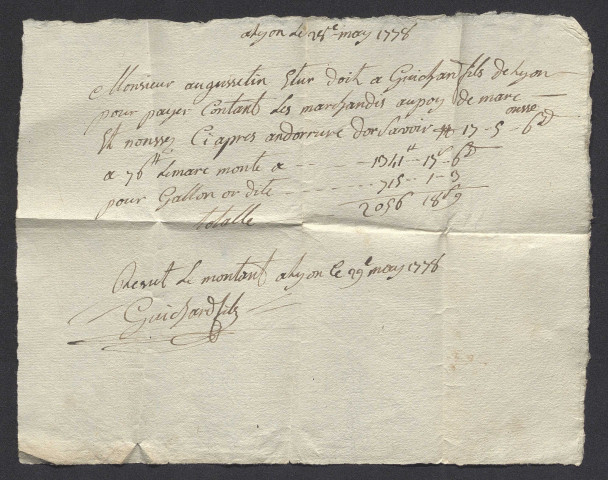 a Lyon Le 28e may 1778
Monsieur augussetin Etur doit a Guichard fils de Lyon
pour payer Contant Les marchandis au poy de marc
Et noussez Ci apres dor Savoir # 17 - 5 ousse - 6 d
a 76 # Le marc monte a - - - 1341 # - 15 s - 6 d
pour Gallon or dite - - - 715 - 1 - 3
totalle 2056 18 s 9
Resut Le montant a Lyon Le 29e may 1778
Guichard fils